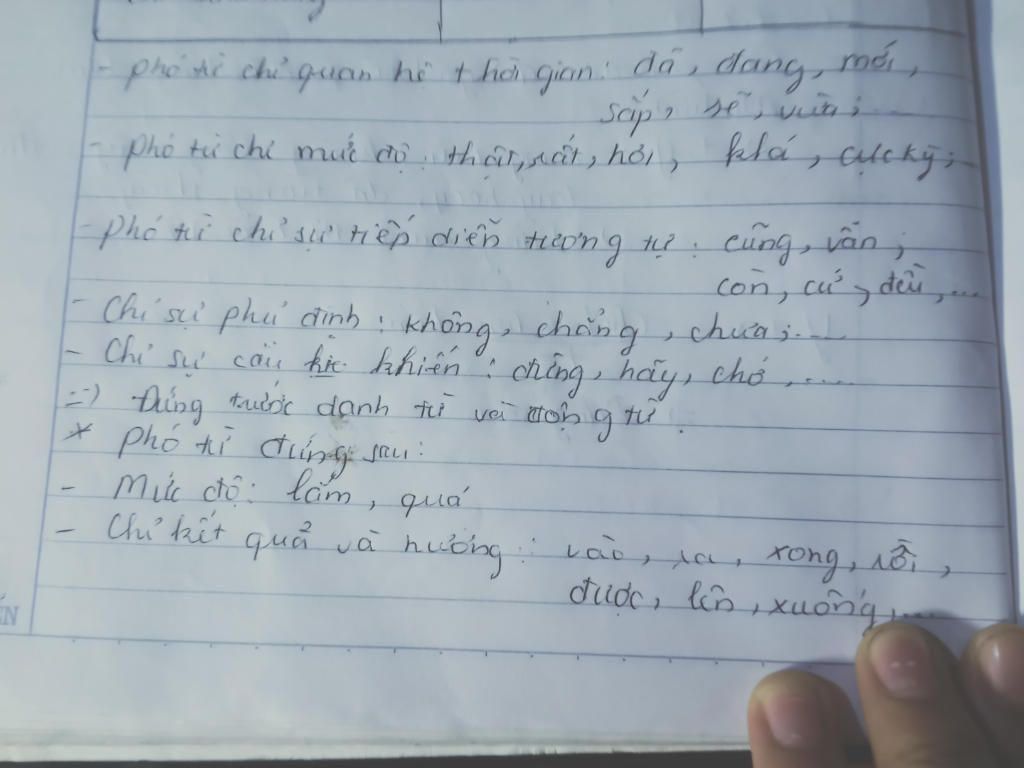 - phó từ chỉ quan hệ thời gian: đã, đang, mới,
sắp, sẽ, vừa;...
- phó từ chỉ mức độ: thật, rất, hơi, khá, cực kỳ;
- phó từ chỉ sự tiếp diễn tương tự: cũng, vẫn;
còn, cứ, đều,...
- Chỉ sự phủ định: không, chẳng, chưa;...
- Chỉ sự cầu khiến: đừng, hãy, chớ,....
=> Đứng trước danh từ và động từ.
* phó từ đứng sau:
- Mức độ: lắm, quá
- Chỉ kết quả và hướng: vào, ra, xong, rồi,
được, lên, xuống,...